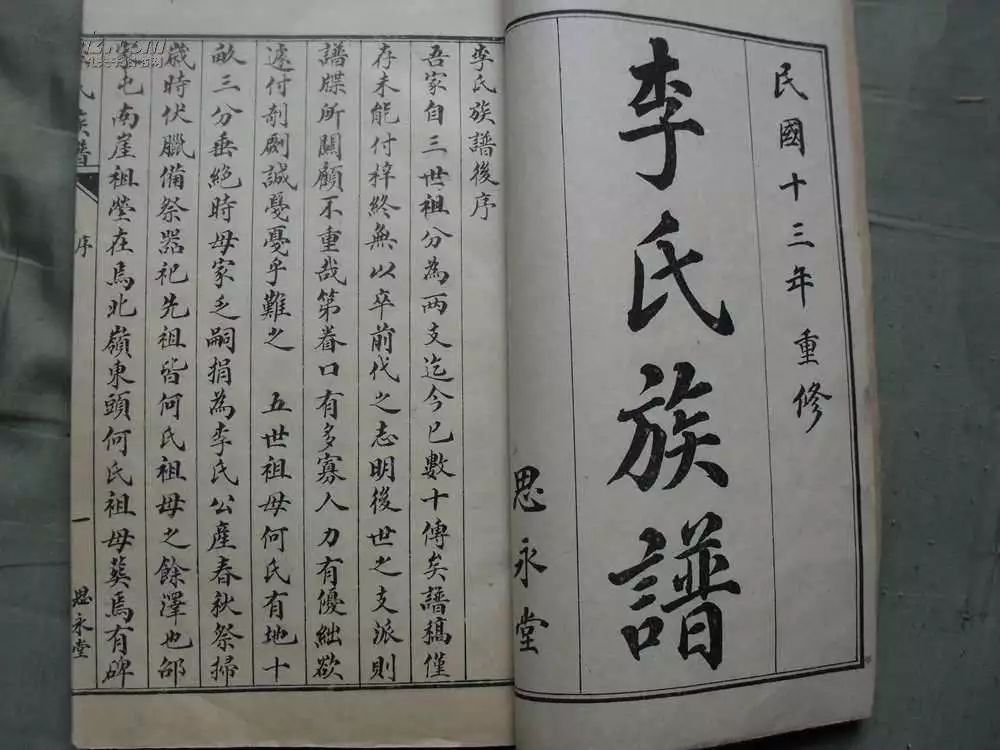 民國十三年重修
李氏族譜
思永堂
李氏族譜後序
吾家自三世祖分為兩支迄今已數十傳矣譜稿僅
存未能付梓終無以卒前代之志明後世之支派則
譜牒所關顧不重哉第眷口有多寡人力有優絀欲
遽付剞劂誠戞戞乎難之 五世祖母何氏有地十
畝三分垂絕時母家乏嗣捐為李氏公產春秋祭掃
歲時伏臘備祭器祀先祖皆何氏祖母之餘澤也邰
也南崖祖塋在馬北嶺東頭何氏祖母葬焉有碑
氏族譜 序 一 思永堂